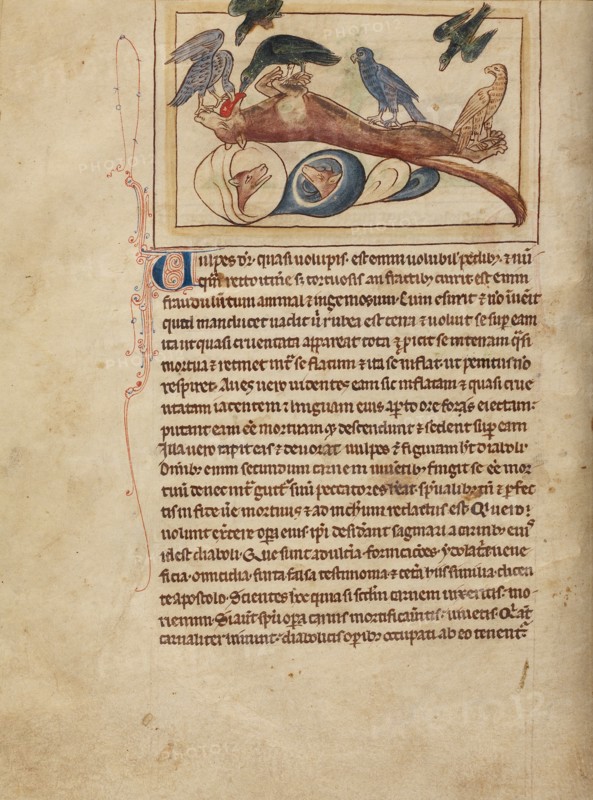 Uulpes dr̄ quasi uoluptis. est enim uolubil' pedibȝ. ⁊ nū
qm̄ recto itine s; tortuosis anfractibȝ currit. est enim
fraudulentum animal ⁊ ingeniosum. Cum esurit ⁊ nō inuenit
quid manducet uadit ubi rubea est terra ⁊ uoluit se sup eam
ita ut quasi cruentata appareat tota ⁊ ꝓicit se in terram q̄si
mortua ⁊ retinet intr̄ se flatum ⁊ ita se inflat. ut penitus nō
respiret. Aues uero uidentes eam sic inflatam ⁊ quasi crue
ntatam iacentem ⁊ linguam eius aperto ore foras eiectam:
putant eam eē mortuam ⁊ descendunt ⁊ sedent sup eam
Illa uero rapit eas ⁊ deuorat uulpes ⁊ figuram ht̄ diaboli.
Omibȝ enim secundum carnem uiuentibȝ fingit se eē mor
tuū donec intr̄ guttr̄ suū peccatores
tis in fide ūe mortuus ⁊ ad nichilum redactus est. Qui uero
uolunt exercere opera eius. ipi desiderant saginari carnibȝ eius
id est diaboli. Que sunt adulteria. fornicationes. ydolatrie. uene
ficia. omicidia. furta. falsa testimonia. ⁊ cetera hiis similia. dicen
te apostolo. Scientes hoc quia si sc̄dm carnem uixeritis. mo
riemini. Si aūt spū opera carnis mortificatis. uiuetis. Qi aūt
carnaliter uiuunt. diabolicis opibȝ occupati ab eo tenentr̄